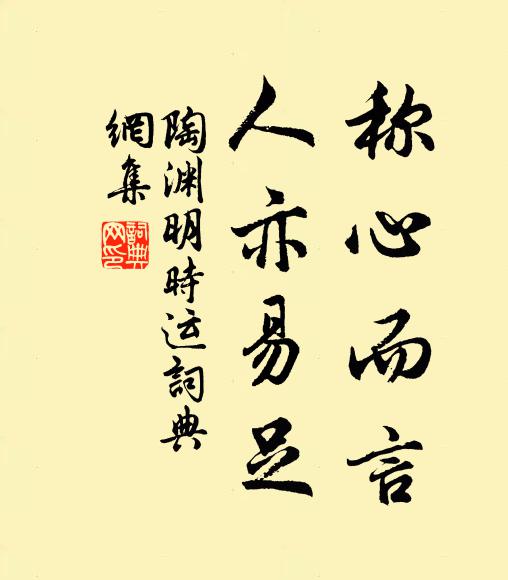 称心而言
人亦易足
陶渊明時运詞典
網集
詞典网印